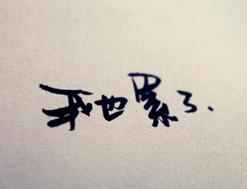 我也累了.